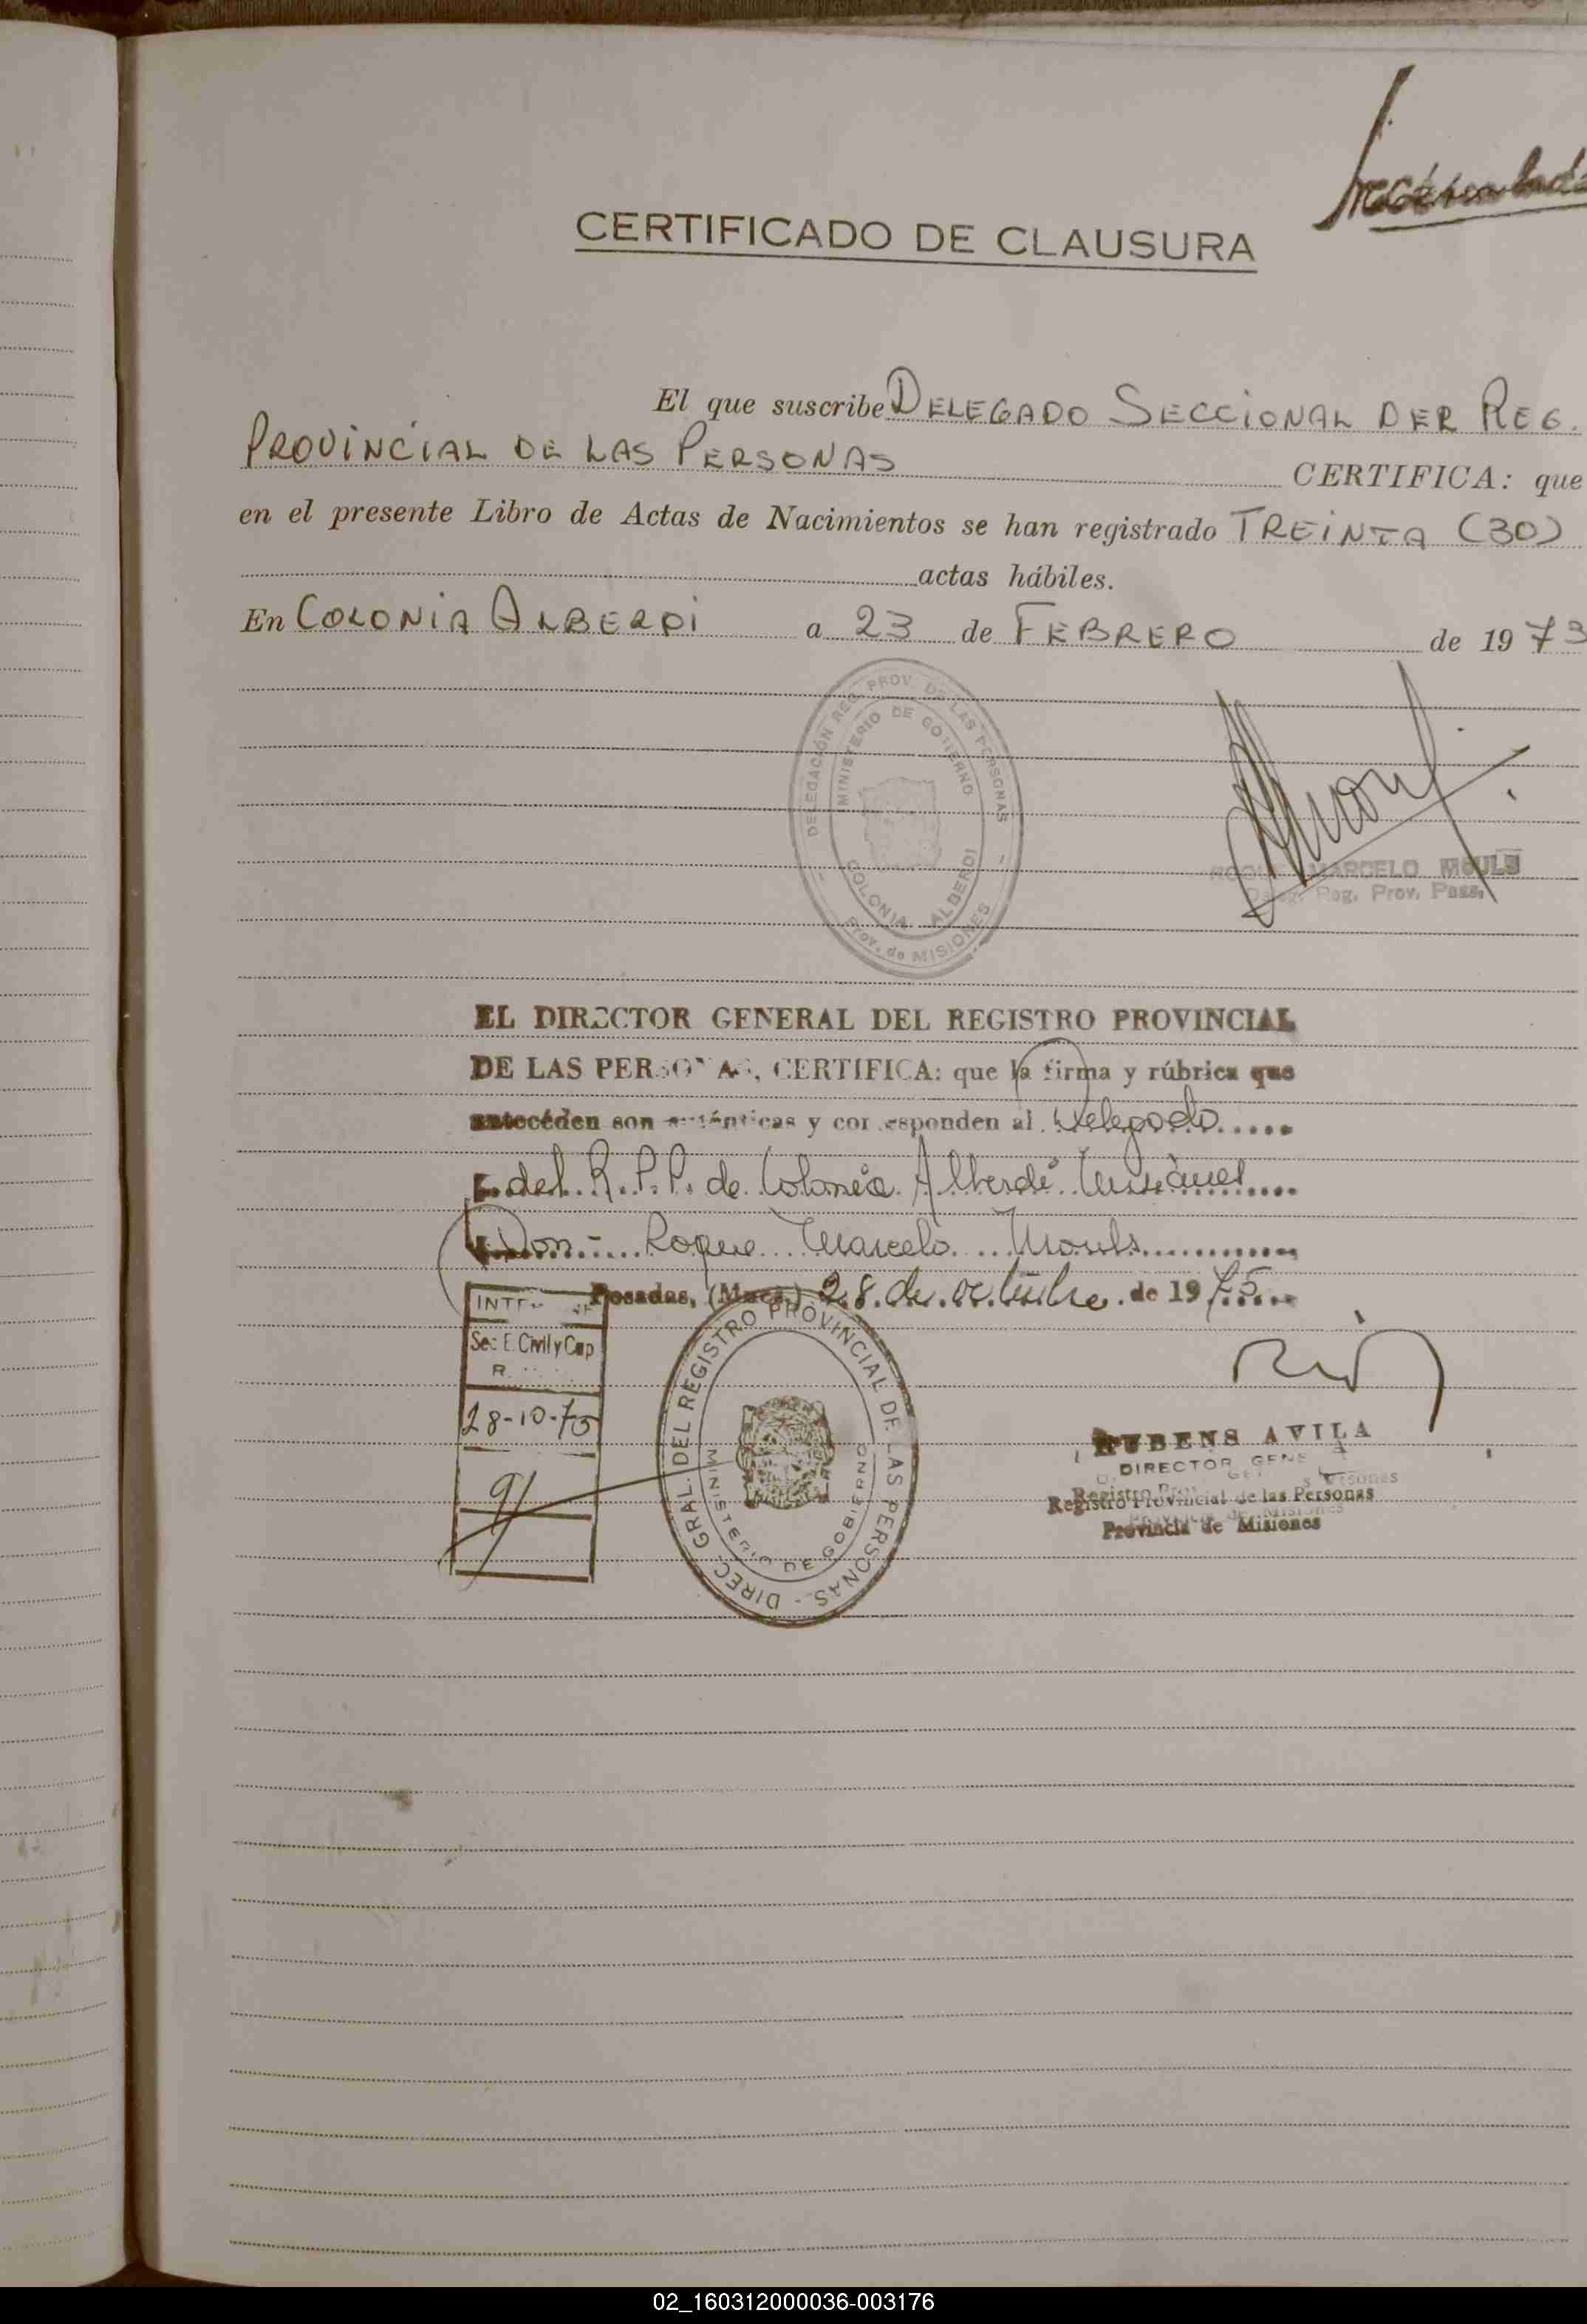 CERTIFICADO DE CLAUSURA
El que suscribe DELEGADO SECCIONAL DER REG.
PROVINCIAL DE LAS PERSONAS CERTIFICA: que
en el presente Libro de Actas de Nacimientos se han registrado TREINTA (30)
actas hábiles.
En COLONIA ALBERDI a 23 de FEBRERO de 1973
DELEGACIÓN REG. PROV. DE LAS PERSONAS
MINISTERIO DE GOBIERNO
COLONIA ALBERDI
Prov. de MISIONES
ROQUE MARCELO MOULS
Deleg. Reg. Prov. Pers.
EL DIRECTOR GENERAL DEL REGISTRO PROVINCIAL
DE LAS PERSONAS, CERTIFICA: que la firma y rúbrica que
anteceden son auténticas y corresponden al Delegado
del R.P.P. de Colonia Alberdi Misiones
Don Roque Marcelo Mouls
Posadas, (Mnes.) 28 de octubre de 1975
Sec E. Civil y Cap
28-10-75
DIREC. GRAL. DEL REGISTRO PROVINCIAL DE LAS PERSONAS
MINISTERIO DE GOBIERNO
RUBENS AVILA
DIRECTOR GENERAL
Registro Provincial de las Personas
Provincia de Misiones
02_160312000036-003176